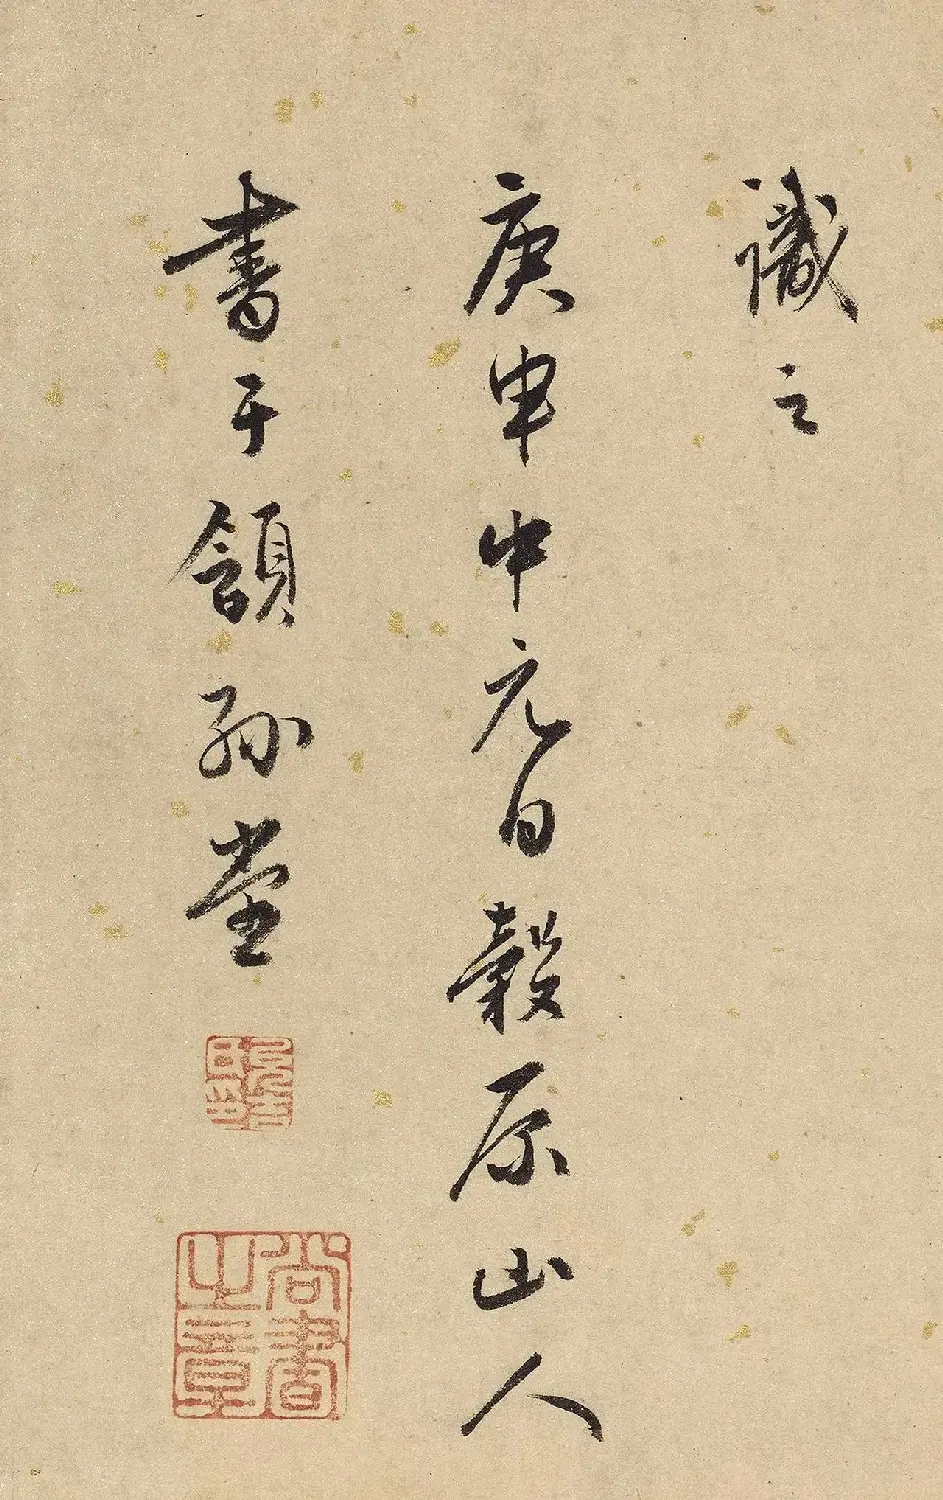 識之
庚申中元日穀原山人
書于頷孫堂
尚書之章